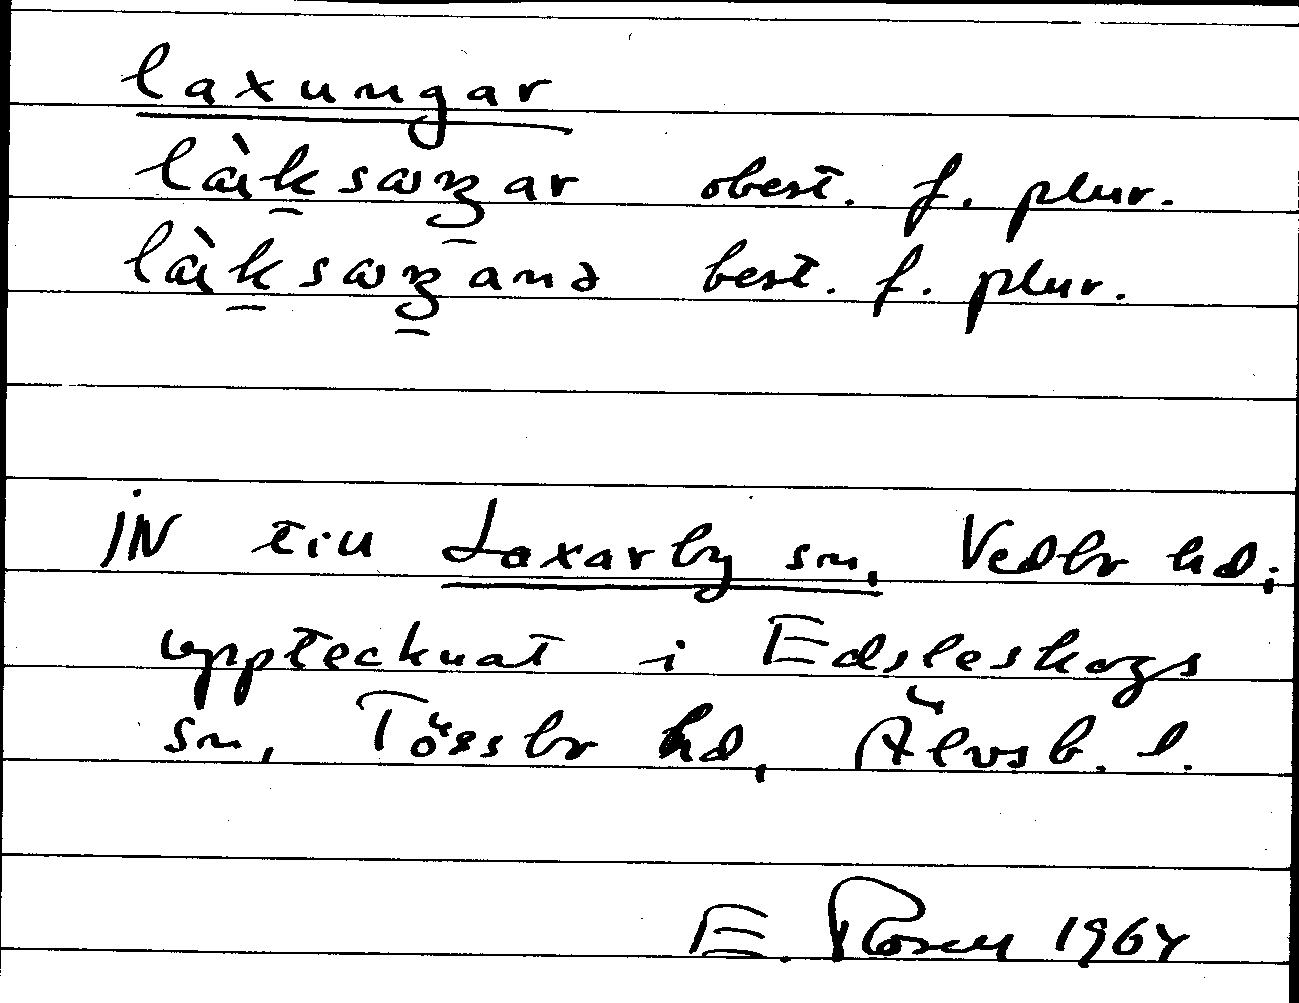 laxungar
obest. f. plur.
best. f. plur.
IN till Laxarby sn, Vedbr hd;
upptecknat i Edsleskogs
sn, Tössbr hd, Älvsb. l.
E. Rosell 1964